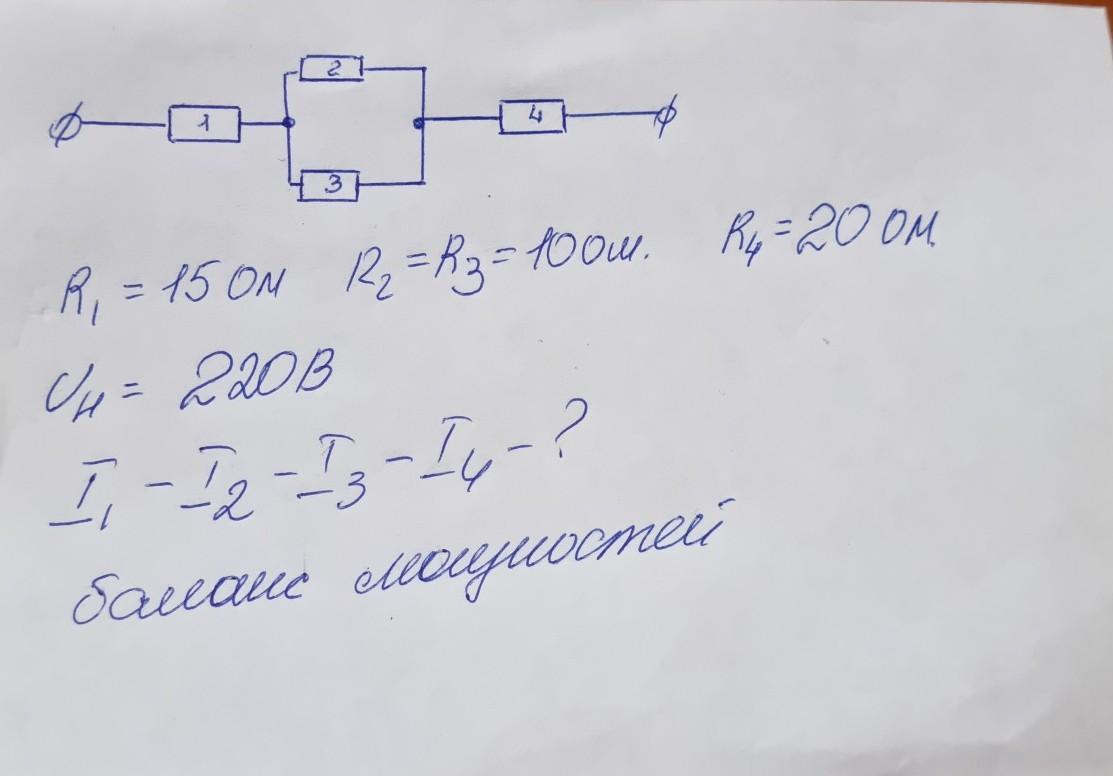 2
1
4
3
R₁ = 15 Ом R₂ = R₃ = 10 Ом. R₄ = 20 Ом.
Uн = 220 В
I₁ – I₂ – I₃ – I₄ – ?
баланс мощностей